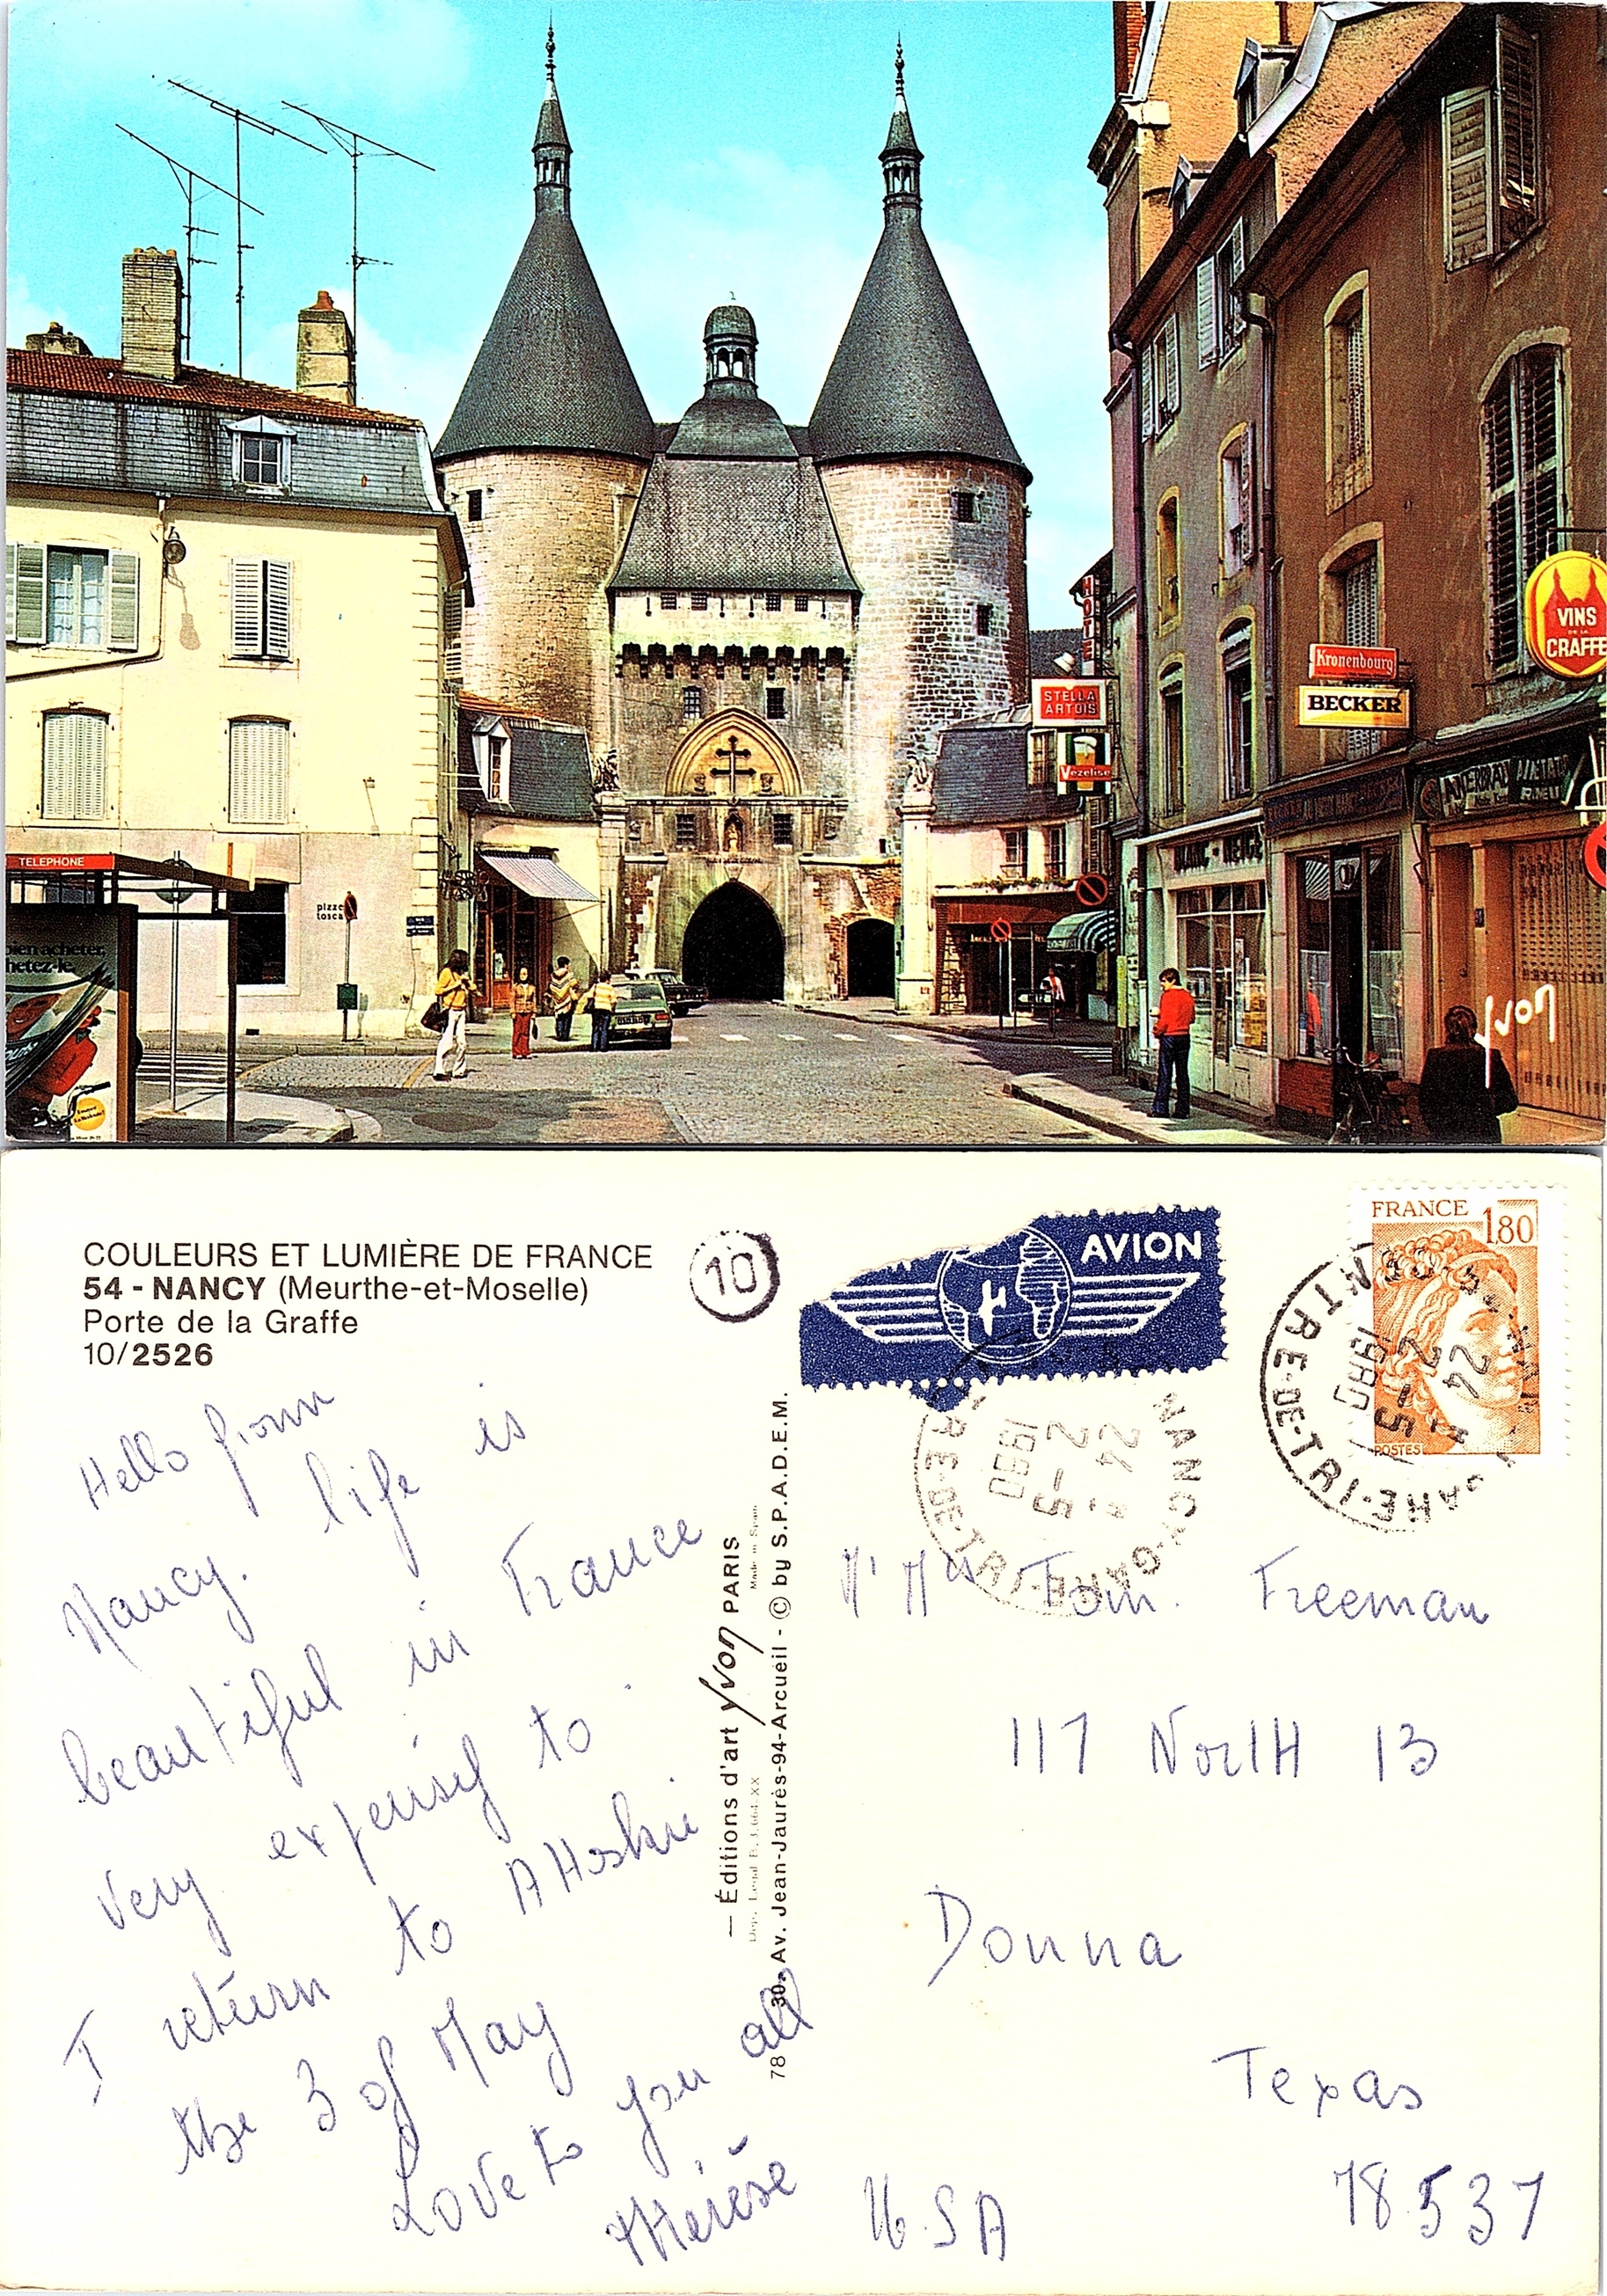 HOTEL
VINS
DE LA
CRAFFE
Kronenbourg
BECKER
STELLA
ARTOIS
Vezelise
BLANC - NEIGE
TELEPHONE
pizza
tosca
bien acheter,
hetez-le
yvon
COULEURS ET LUMIÈRE DE FRANCE
54 - NANCY (Meurthe-et-Moselle)
Porte de la Graffe
10/2526
10
AVION
FRANCE 1,80
POSTES
NANCY-GARE
CENTRE-DE-TRI
24
2-5
1980
NANCY-GARE
CENTRE-DE-TRI
24
2-5
1980
Hello from
Nancy. life is
beautiful in France
very expensif to.
I return to
the 3 of May
Love to you all
Thérèse
— Éditions d'art yvon PARIS
Made in Spain
Dep. Legal B. 3.664-XX
78 30, Av. Jean-Jaurès-94-Arcueil - © by S.P.A.D.E.M.
Mr Mrs Tom. Freeman
117 NorTH 13
Donna
Texas
USA 78537